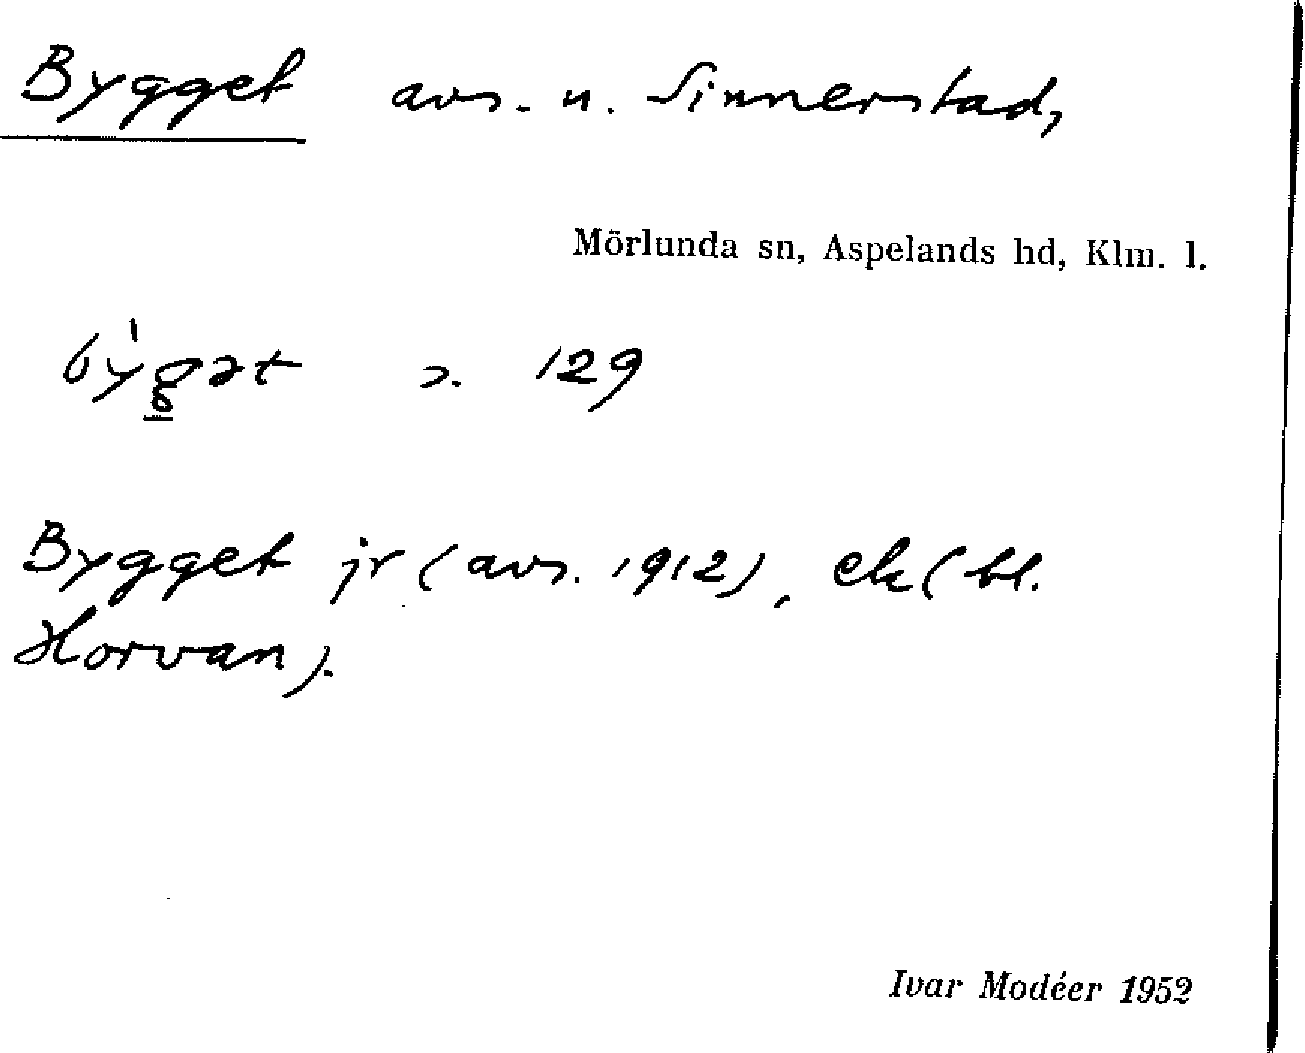 Bygget avs. u. Sinnerstad,
Mörlunda sn, Aspelands hd, Klm. l.
býgət s. 129
Bygget jr (avs. 1912), ek (bl.
Horvan).
Ivar Modéer 1952